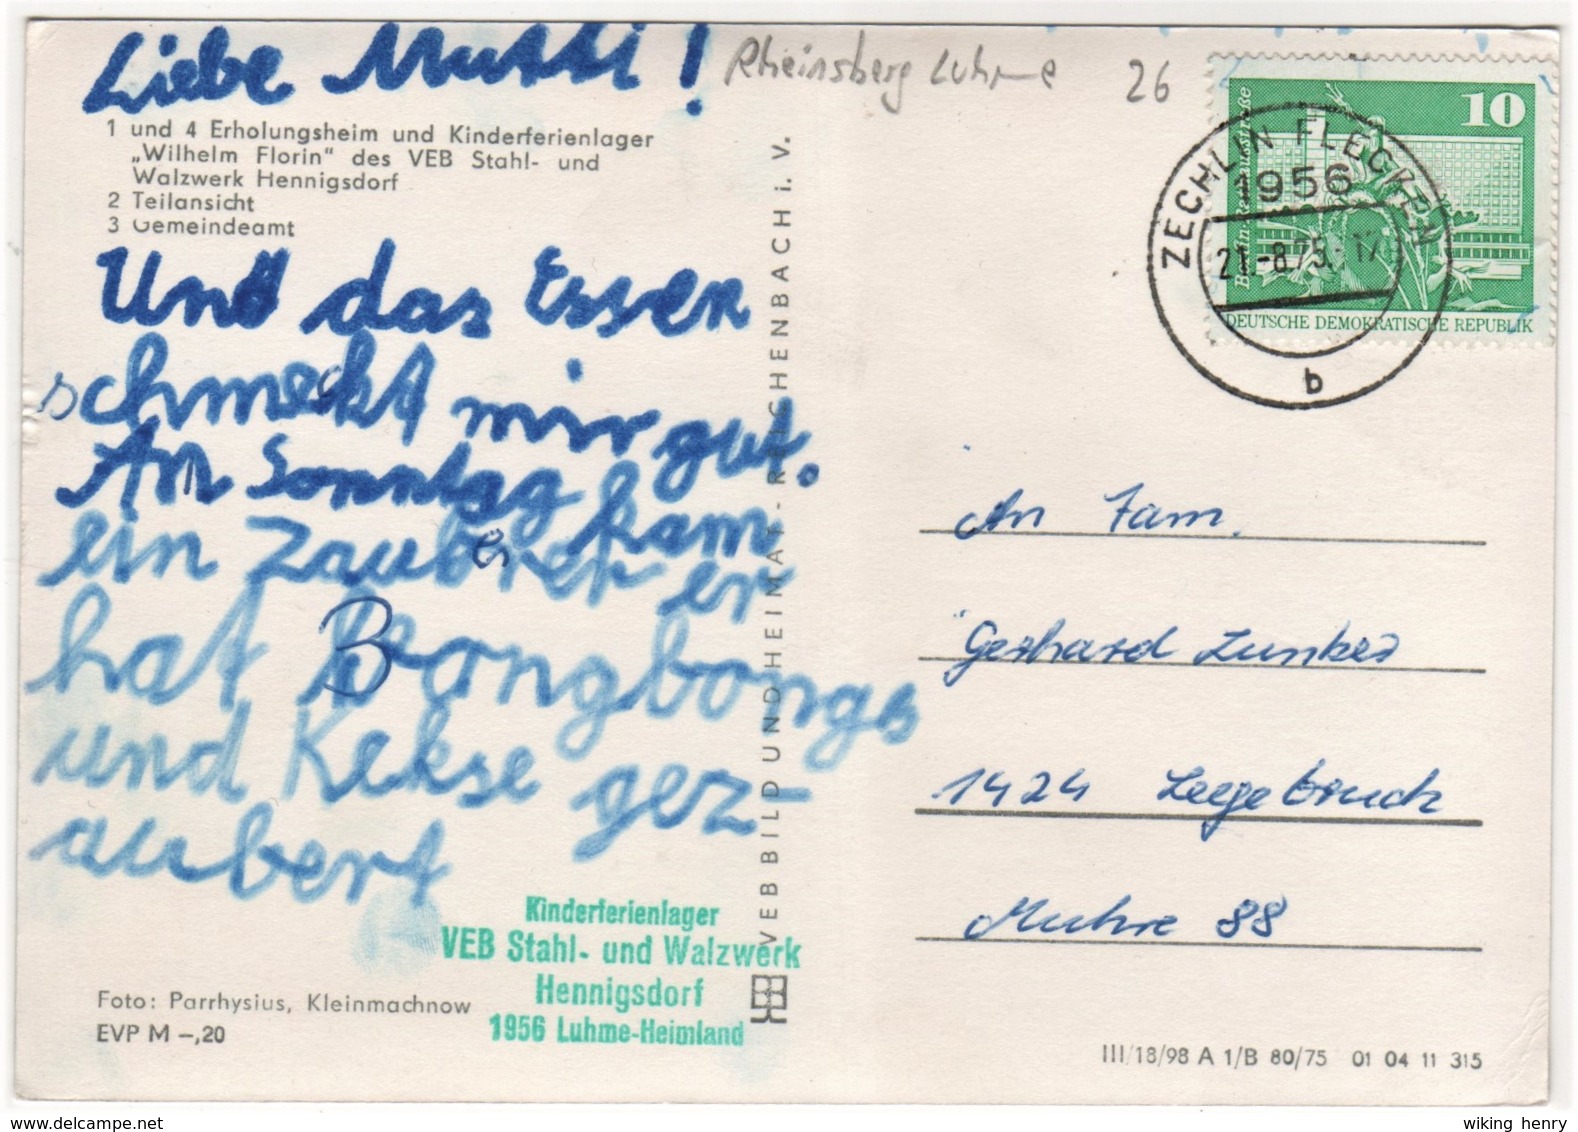 Liebe Mutti!
Rheinsberg Luhme 26
1 und 4 Erholungsheim und Kinderferienlager
„Wilhelm Florin" des VEB Stahl- und
Walzwerk Hennigsdorf
2 Teilansicht
3 Gemeindeamt
Und das Essen
schmeckt mir gut.
Am Sonntag kam
ein Zauberer er
hat Bongbongs
und Kekse gez-
aubert
Kinderferienlager
VEB Stahl- und Walzwerk
Hennigsdorf
1956 Luhme-Heimland
Foto: Parrhysius, Kleinmachnow
EVP M –,20
VEB BILD UND HEIMAT - REICHENBACH i. V.
10
DEUTSCHE DEMOKRATISCHE REPUBLIK
ZECHLIN FLECKEN
1956
21.-8.75.-17
b
An Fam.
Gerhard Lunker
1424 Leegebruch
Muhre 88
III/18/98 A 1/B 80/75 01 04 11 315
www.delcampe.net
wiking henry